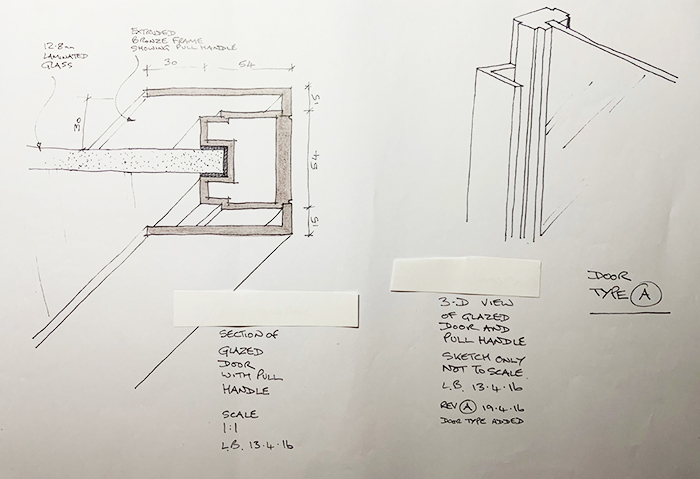 12.8mm
LAMINATED
GLASS
EXTRUDED
BRONZE FRAME
SHOWING PULL HANDLE
30
54
15
30
54
15
SECTION OF
GLAZED
DOOR
WITH PULL
HANDLE
SCALE
1:1
L.B. 13.4.16
3-D VIEW
OF GLAZED
DOOR AND
PULL HANDLE
SKETCH ONLY
NOT TO SCALE
L.B. 13.4.16
REV A 19.4.16
DOOR TYPE ADDED
DOOR
TYPE A